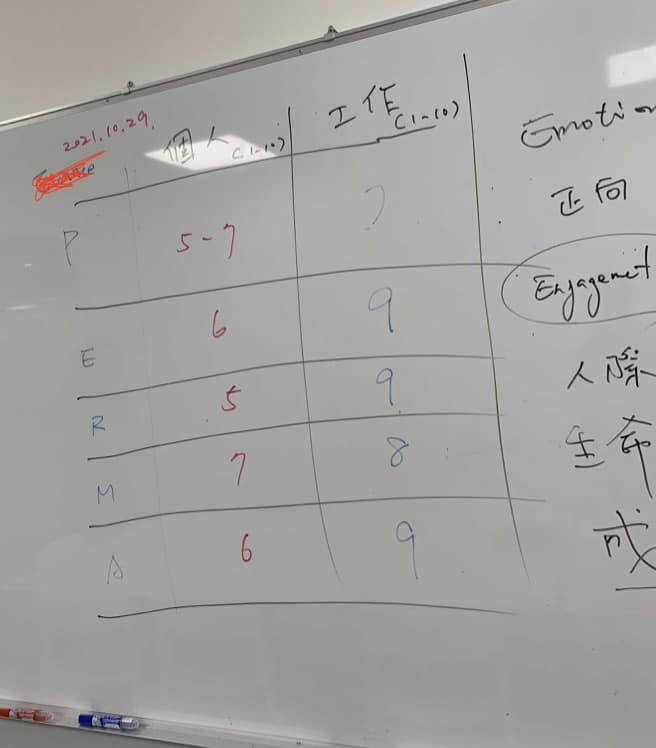 2021.10.29.
個人(1-10) 工作(1-10)
P 5-7 7
E 6 9
R 5 9
M 7 8
A 6 9
Emotion
正向
Engagemet
人際
生命
成